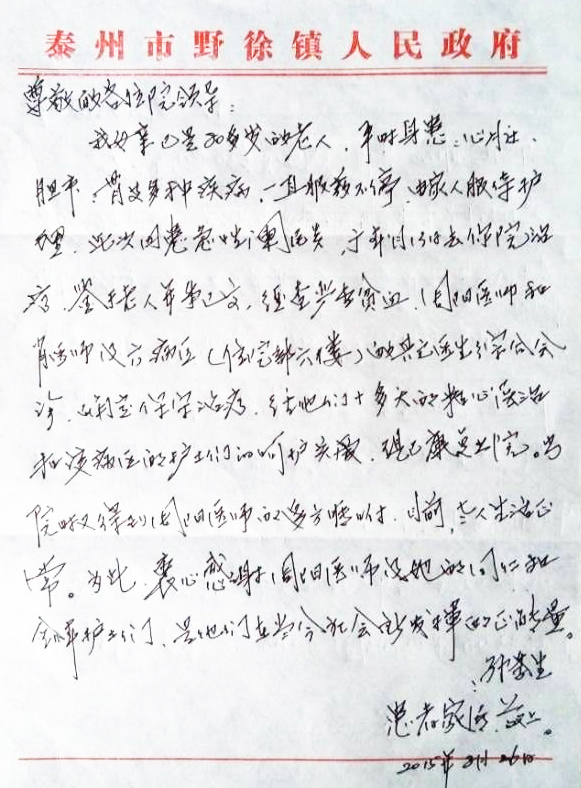 泰州市野徐镇人民政府
尊敬的各位院领导：
我父亲已是80多岁的老人，平时身患：心脏、
胆、胃及多种疾病，一直服药不停，由家人服侍护
理，此次因患急性阑尾炎，于本月15日去你院治
疗，鉴于老人年事已高，经查患贫血，周阳医师和
肖医师及六病区（住院部六楼）的其它医生综合会
诊，制定保守治疗，经他们十多天的精心医治
和该病区的护士们的呵护关爱，现已康复出院。出
院时又得到周阳医师的多方嘱咐，目前，老人生活正
常。为此，衷心感谢周阳医师及她的同仁和
全体护士们，是他们在当今社会所发挥的正能量。
患者家属
2015年8月26日